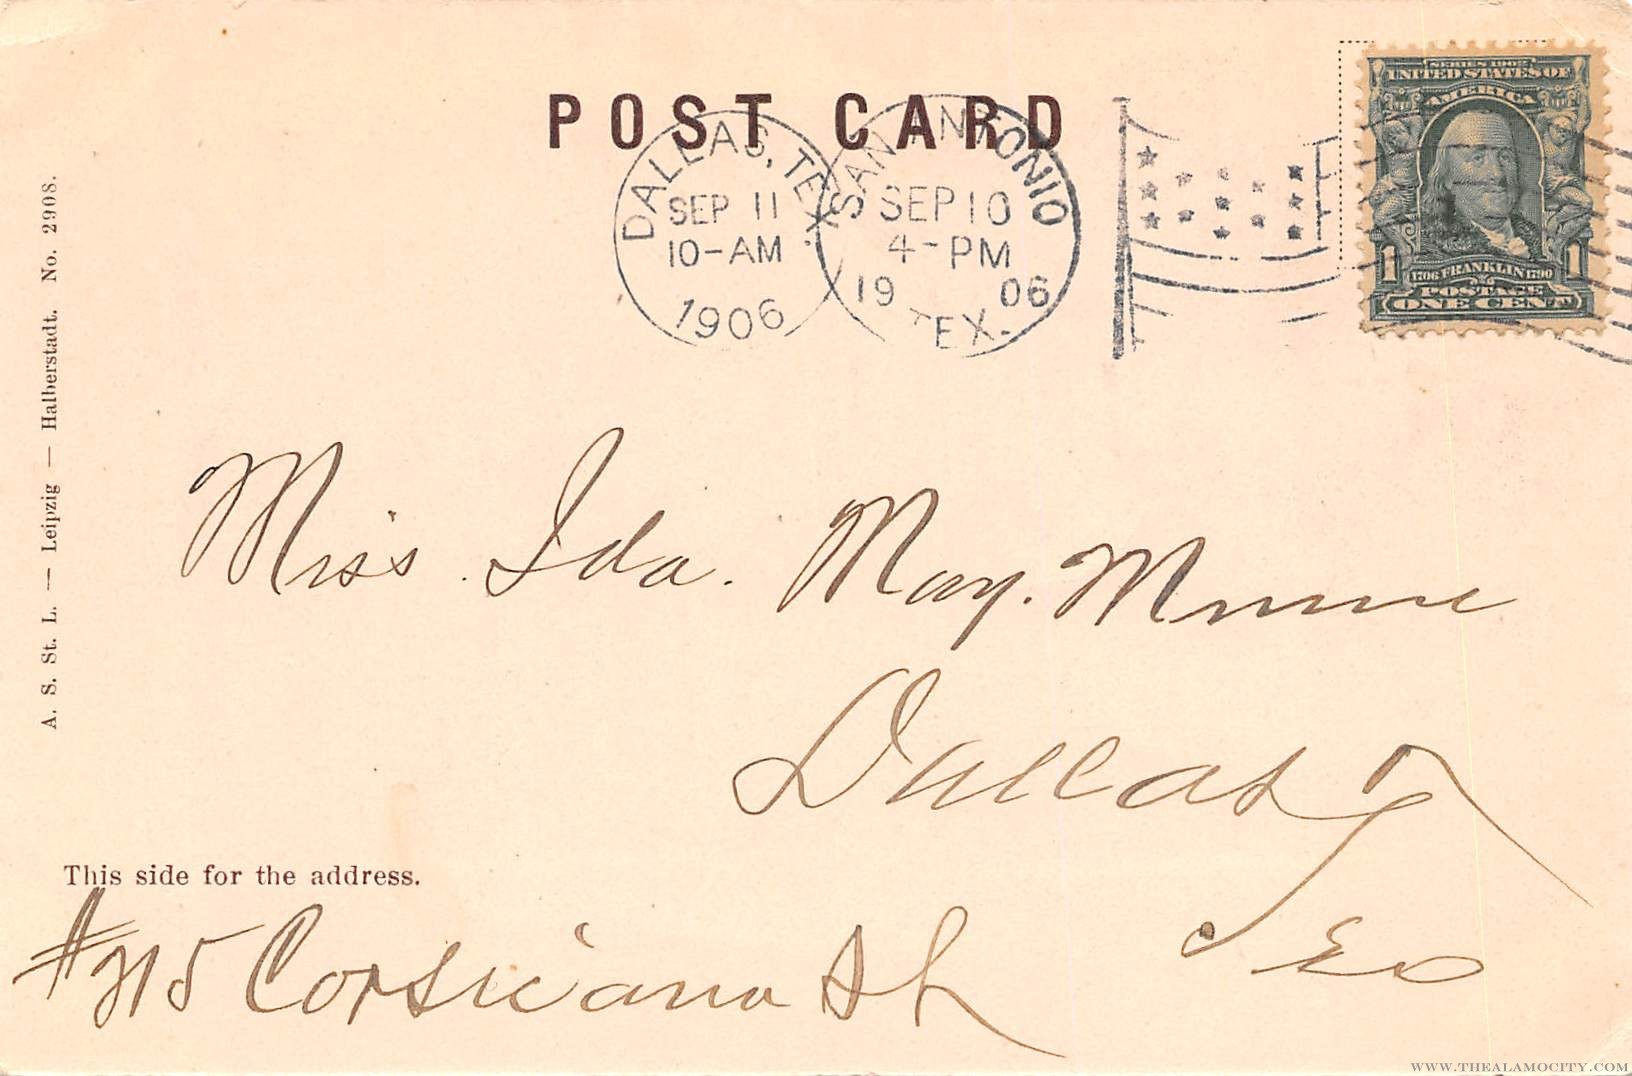 POST CARD
DALLAS, TEX.
SEP 11
10-AM
1906
SAN ANTONIO
SEP 10
4-PM
19 06
TEX.
SERIES 1902
UNITED STATES OF
AMERICA
1706 FRANKLIN 1790
POSTAGE
1 ONE CENT 1
A. S. St. L. — Leipzig — Halberstadt. No. 2908.
Miss. Ida. May.
Dallas
Tex
This side for the address.
Corsicana St
WWW.THEALAMOCITY.COM